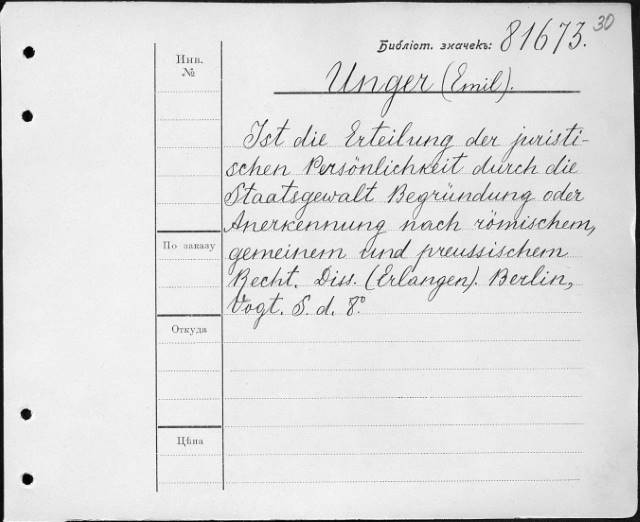 30
Библіот. значекъ: 81673.
Инв.
№
Unger (Emil).
Ist die Erteilung der juristi-
schen Persönlichkeit durch die
Staatsgewalt Begründung oder
Anerkennung nach römischem,
gemeinem und preussischem
Recht. Diss. (Erlangen). Berlin,
Vogt. S. d. 8°
По заказу
Откуда
Цѣна